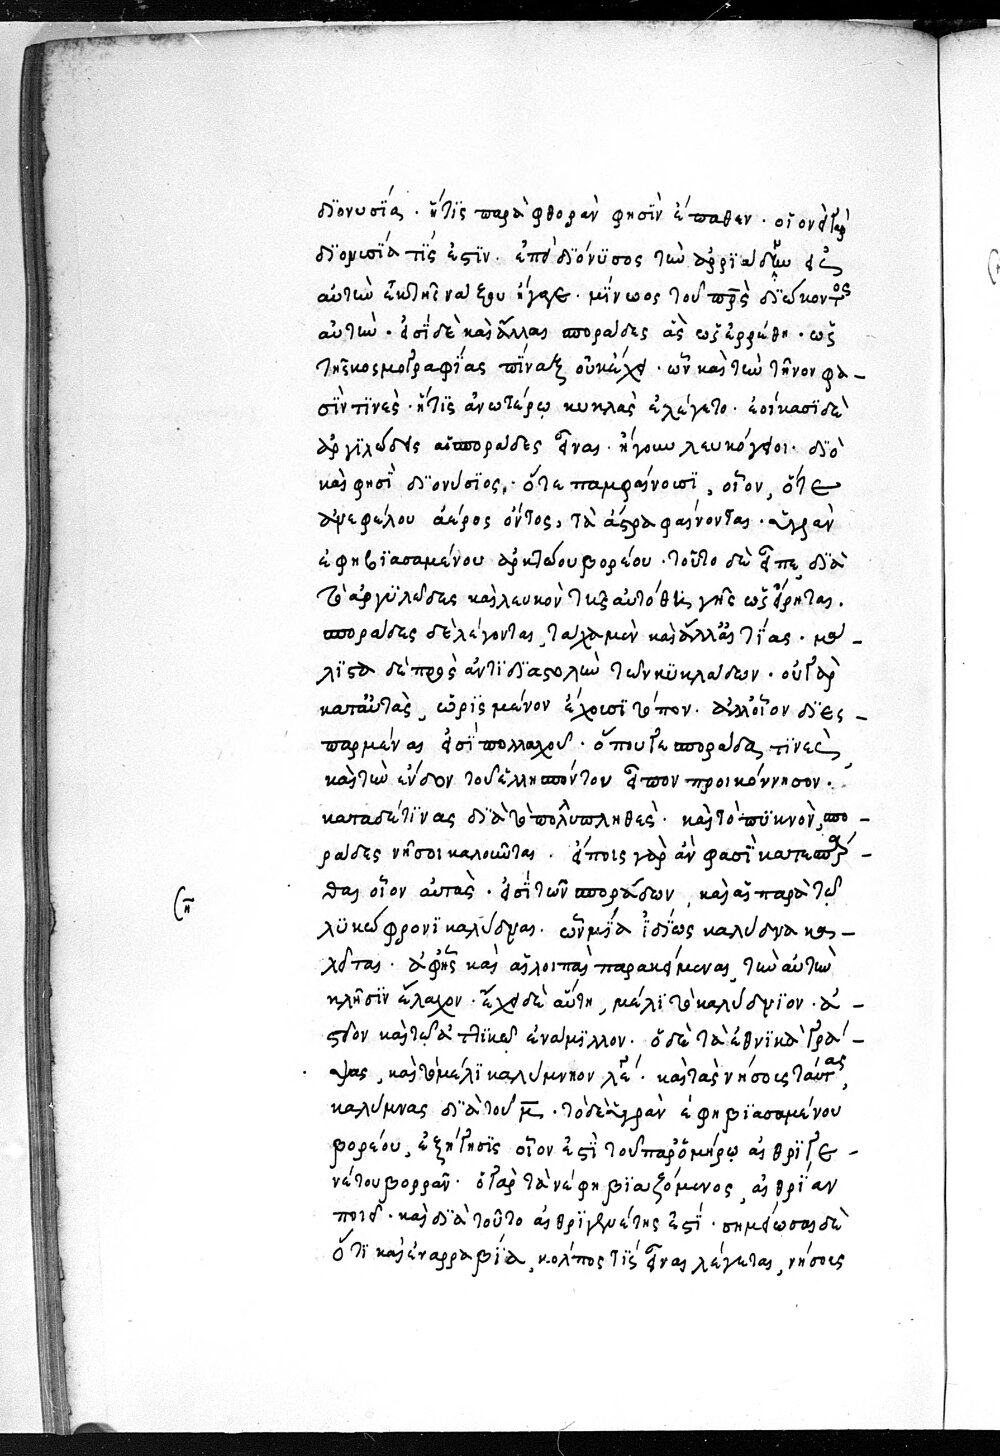 διονυσία . ἥτις παρὰ φθορὰν φησὶν ἔπαθεν . οἱονεὶ γὰρ
διονυσία τίς ἐστὶν . ἐπεὶ διόνυσος τὴν ἀριάδνην εἰς
αὐτὴν ἐκ τῆς νάξου ἤγαγε . μίνωος τοῦ πατρὸς διώκοντος
αὐτὴν . εἰσὶ δὲ καὶ ἄλλαι σποράδες ἃς ὡς ἐρρέθη . ὡς
τῆς κοσμογραφίας πίναξ οὐκ ἔχει . ὧν καὶ τὴν τῆνον φα-
σίν τινες . ἥτις ἀνωτέρω κυκλὰς ἐλέγετο . ἐοίκασι δὲ
ἀργιλώδεις αἱ σποράδες εἶναι . ἤγουν λευκόγειοι . διὸ
καὶ φησὶ διονύσιος, ὅτε παμφαίνουσι, οἷον, ὅτε
ἀνεφέλου ἀέρος ὄντος, τὰ ἄστρα φαίνονται . ὑγρὰν
ἔφη βιασαμένου ἀρκτώου βορέου . τοῦτο δὲ εἶπε, διὰ
τὸ ἀργιλῶδες καὶ λευκὸν τῆς αὐτόθι γῆς ὡς εἴρηται .
σποράδες δὲ λέγονται, τάχα μὲν καὶ ἄλλως τίας . μά-
λιστα δὲ πρὸς ἀντιδιαστολὴν τῶν κυκλάδων . οὐ γὰρ
κατ' αὐτὰς, ὡρισμένον ἔχουσι τόπον . ἀλλ' οἷον διεσ-
παρμέναι εἰσὶ πολλαχοῦ . ὅπου γε σποράδα τινὲς,
καὶ τὴν ἔνδον τοῦ ἑλλησπόντου εἶπον προικόννησον .
κατὰ δέ τινας διὰ τὸ πολυπληθὲς . καὶ τὸ πυκνὸν, σπο-
ράδες νῆσοι καλοῦνται . εἴποις γὰρ ἂν φασὶ κατεσπάρ-
θαι οἷον αὐτὰς . εἰσὶ τῶν σποράδων, καὶ αἱ παρὰ τῷ
λυκόφρονι καλύδναι . ὧν μία ἰδίως καλύδνα κα-
λεῖται . ἀφ' ἧς καὶ αἱ λοιπαὶ παρακείμεναι, τὴν αὐτὴν
κλῆσιν ἔλαχον . ἔχει δὲ αὕτη, μέλι τὸ καλύδνιον . ἀ-
στεῖον καὶ τῷ ἀττικῷ ἐνάμιλλον . ὁ δὲ τὰ ἐθνικὰ γρά-
ψας, καὶ τὸ μέλι καλύμνιον λέγει . καὶ τὰς νήσους ταύτας,
καλύμνας διὰ τοῦ μ . τὸ δὲ ὑγρὰν ἔφη βιασαμένου
βορέου, ἐξήγησις οἷον ἐστὶ τοῦ παρ' ὁμήρῳ αἰθρηγε-
νέτου βορρᾶν . ὁ γὰρ τὰ νέφη βιαζόμενος, αἰθρίαν
ποιεῖ . καὶ διὰ τοῦτο αἰθρηγενέτης ἐστὶ . σημείωσαι δὲ
ὅτι καὶ ἐν ἀρραβία, κόλπος τίς εἶναι λέγεται, νήσους